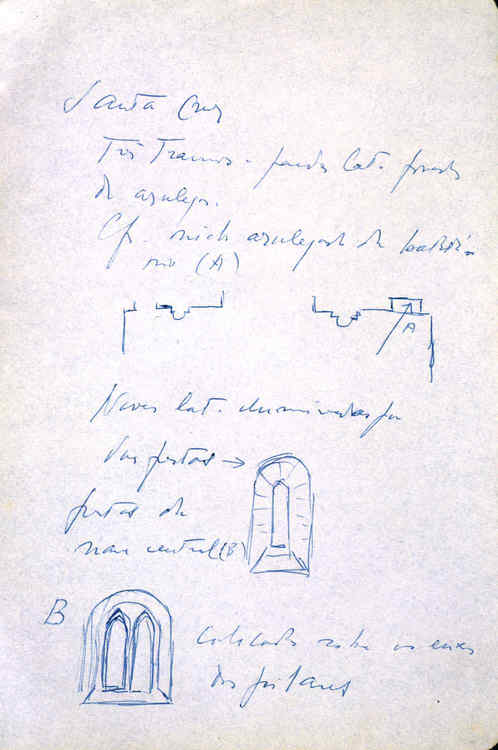 Santa Cruz
Três Tramos - paredes lat. forradas
de azulejos.
Cf. nicho azulejado de baptisté-
rio (A)
A
Naves lat. iluminadas por
frestas →
frestas da
nave central (B)
B
colocadas sobre os eixos
dos pilares